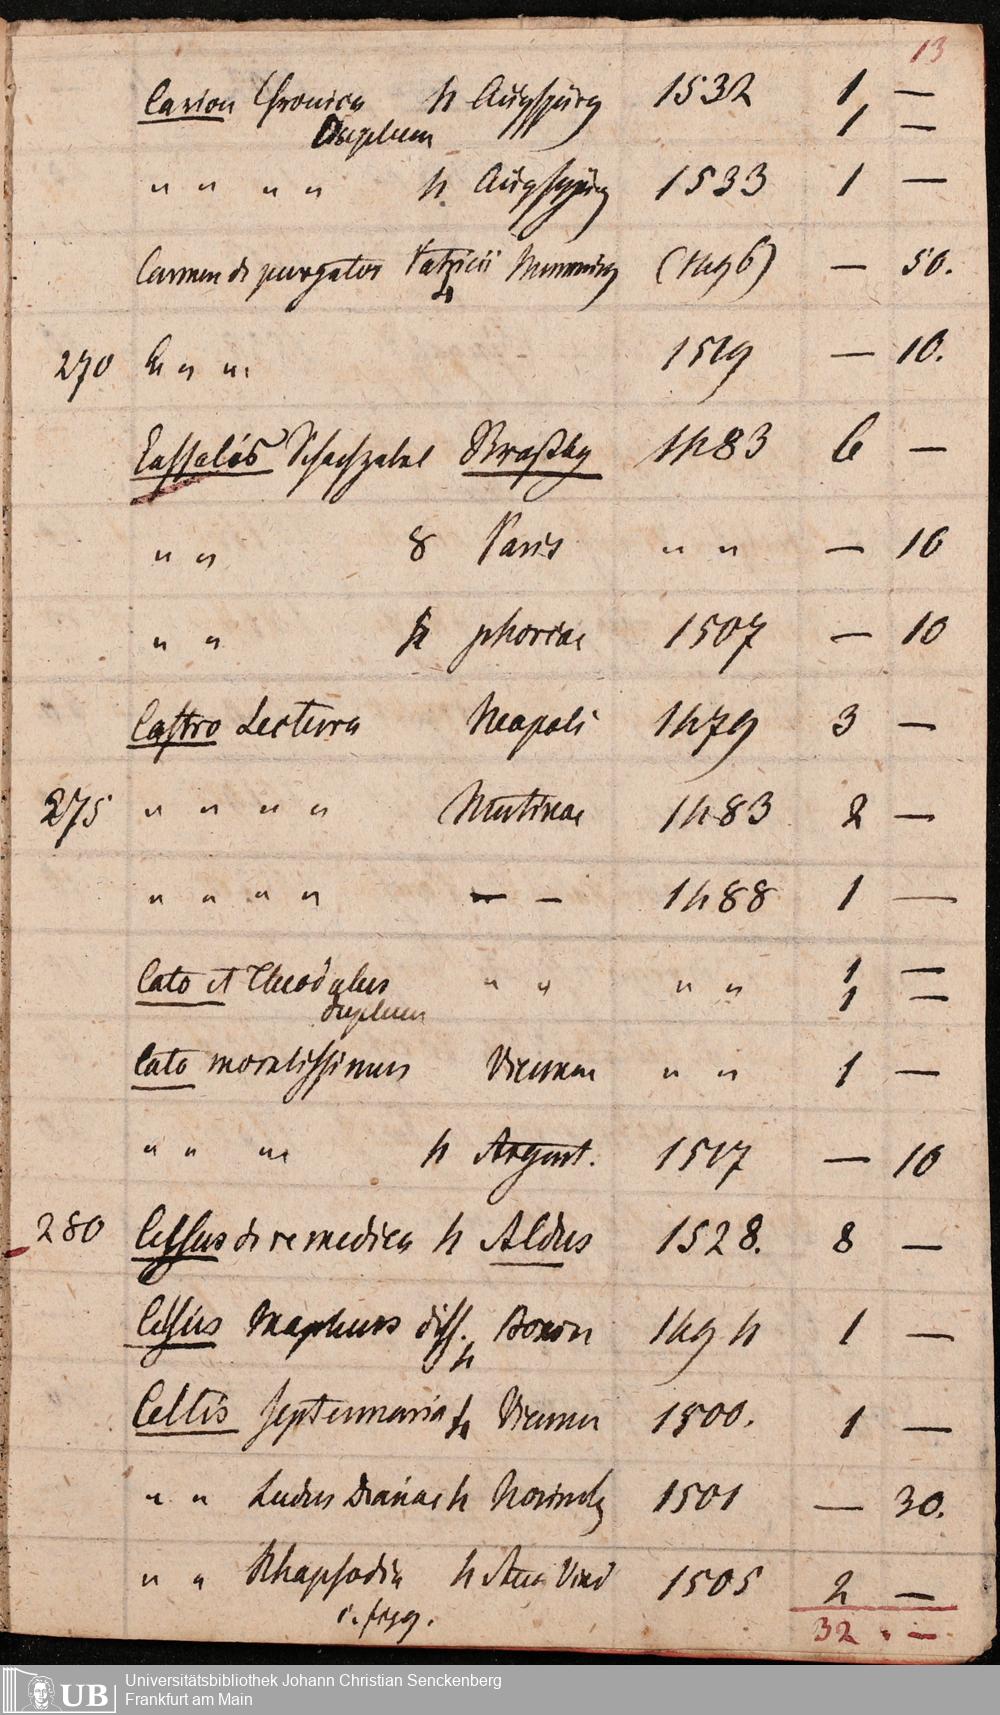 13
Carion Chronica 4 Augspurg 1532 1 —
Duplum 1 —
" " " " 4 Augspurg 1533 1 —
Carmen de purgator Patricii 4 Memming (1496) — 50.
270 " " " 1519 — 10.
Cessolis Schachzabel Straßbg 1483 6 —
" " 8 Paris " " — 10
" " 4 phorcae 1507 — 10
Castro Lectura Neapoli 1479 3 —
275 " " " " Mutinae 1483 2 —
" " " " — — 1488 1 —
Cato et Theodulus " " " " 1 —
duplum 1 —
Cato moralissimus Viennae " " 1 —
" " " 4 Argent. 1517 — 10
280 Celsus de re medica 4 Aldus 1528. 8 —
Celsus Mapheus diss. 4 Bonon 1494 1 —
Celtis septennaria 4 Viennae 1500. 1 —
" " Ludus Dianae 4 Norimbg 1501 — 30.
" " Rhapsodia 4 Aug Vind 1505 2 —
c. figg.
32 . —
Universitätsbibliothek Johann Christian Senckenberg
UB Frankfurt am Main